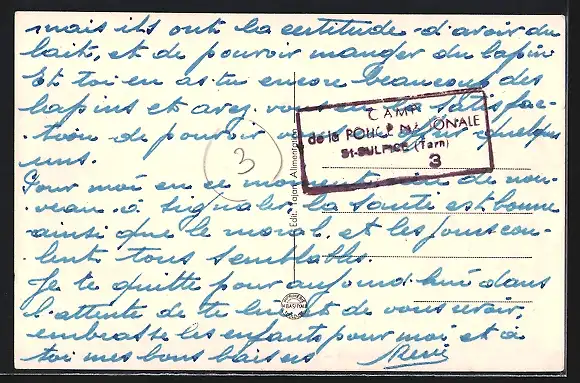 mais ils ont la certitude d'avoir du
lait, et de pouvoir manger du lapin
Et toi en as-tu encore beaucoup des
lapins et avez vous eu la satisfac-
tion de pouvoir en quelques
uns.
Pour moi en ce moment rien de nou-
veau à signaler la santé est bonne
ainsi que le moral, et les jours cou-
lent tous semblables.
Je te quitte pour aujourd'hui dans
l'attente de te lire et de vous revoir,
embrasse les enfants pour moi et à
toi mes bons baisers René
CAMP
de la POLICE NATIONALE
St-SULPICE (Tarn)
3
3
Edit. Alimentation